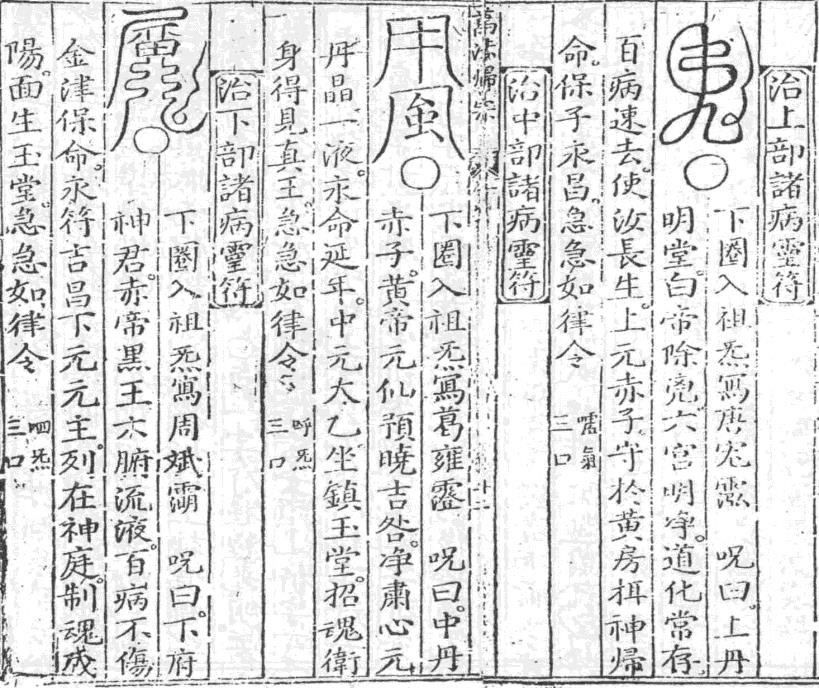 治上部諸病靈符
下圈入祖炁寫唐宏 呪曰上丹
明堂白帝除兇六宮明净道化常存
百病速去使汝長生上元赤子守於黄房拑神歸
命保子永昌急急如律令 噓氣三口
治中部諸病靈符
下圈入祖炁寫葛雍 呪曰中丹
赤子黄帝元仙預曉吉咎净肅心元
丹晶一液永命延年中元太乙坐鎮玉堂招魂衛
身得見真王急急如律令 呼炁三口
治下部諸病靈符
下圈入祖炁寫周斌 呪曰下府
神君赤帝黒王六腑流液百病不傷
金津保命永符吉昌下元元主列在神庭制魂成
陽面生玉堂急急如律令 呬炁三口
萬法歸宗